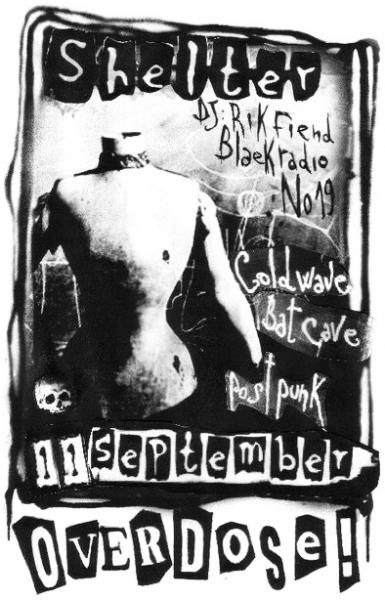 Shelter
DJ: RiK Fiend
Blackradio
No19
Coldwave
Bat Cave
post punk
11 september
OVERDOSe!